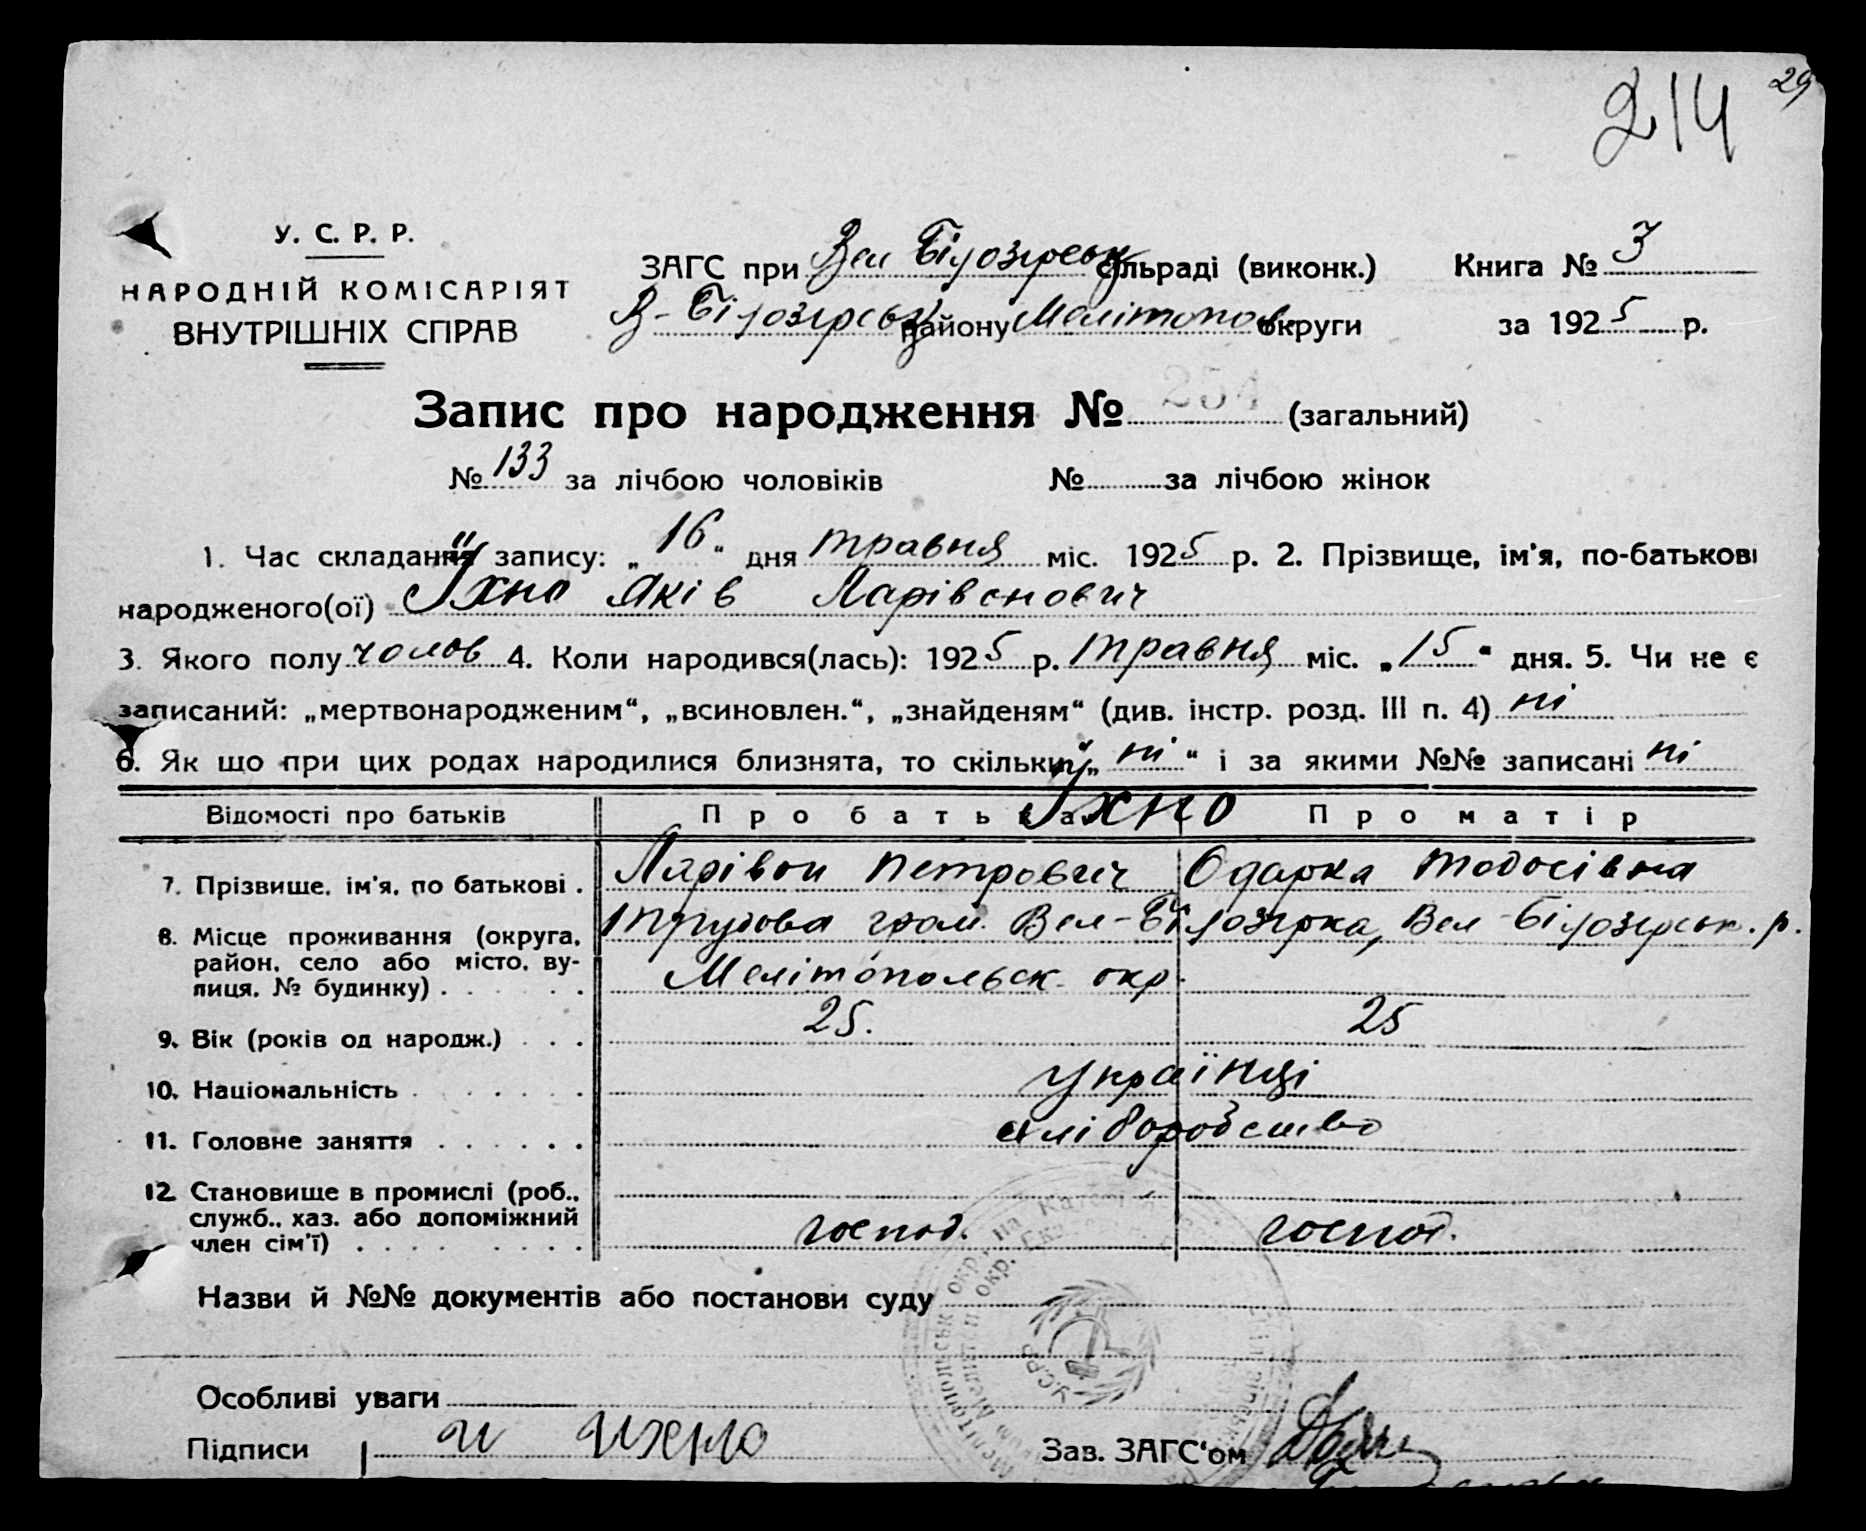 29
214
У. С. Р. Р.
НАРОДНІЙ КОМІСАРІЯТ
ВНУТРІШНІХ СПРАВ
ЗАГС при Вел Білозірськ сільраді (виконк.) Книга № 3
В-Білозірськ району Мелітопов округи за 1925 р.
Запис про народження № 254 (загальний)
№ 133 за лічбою чоловіків № за лічбою жінок
1. Час складання запису: „16“ дня травня міс. 1925 р. 2. Прізвище, ім'я, по-батькові
народженого(ої) Їхно Яків Ларівонович
3. Якого полу чолов 4. Коли народився(лась): 1925 р. травня міс. „15“ дня. 5. Чи не є
записаний: „мертвонародженим“, „всиновлен.“, „знайденям“ (див. інстр. розд. III п. 4) ні
6. Як що при цих родах народилися близнята, то скільки „ні“ і за якими №№ записані ні
Відомості про батьків Про батька Про матір
Їхно
7. Прізвище, ім'я, по батькові . Ларівон Петрович Одарка Тодосівна
8. Місце проживання (округа, район, село або місто, вулиця, № будинку) . . . . . . гром. Вел-Білозірка, Вел Білозірськ. р.
Мелітопольськ окр.
9. Вік (років од народж.) . . . 25. 25
10. Національність . . . . . . . Українці
11. Головне заняття . . . . . . хліборобство
12. Становище в промислі (роб.,
служб., хаз. або допоміжний
член сім'ї) . . . . . . . . . господ. господ.
Назви й №№ документів або постанови суду
Особливі уваги
Підписи и ихно Зав. ЗАГС'ом
У.С.Р.Р.